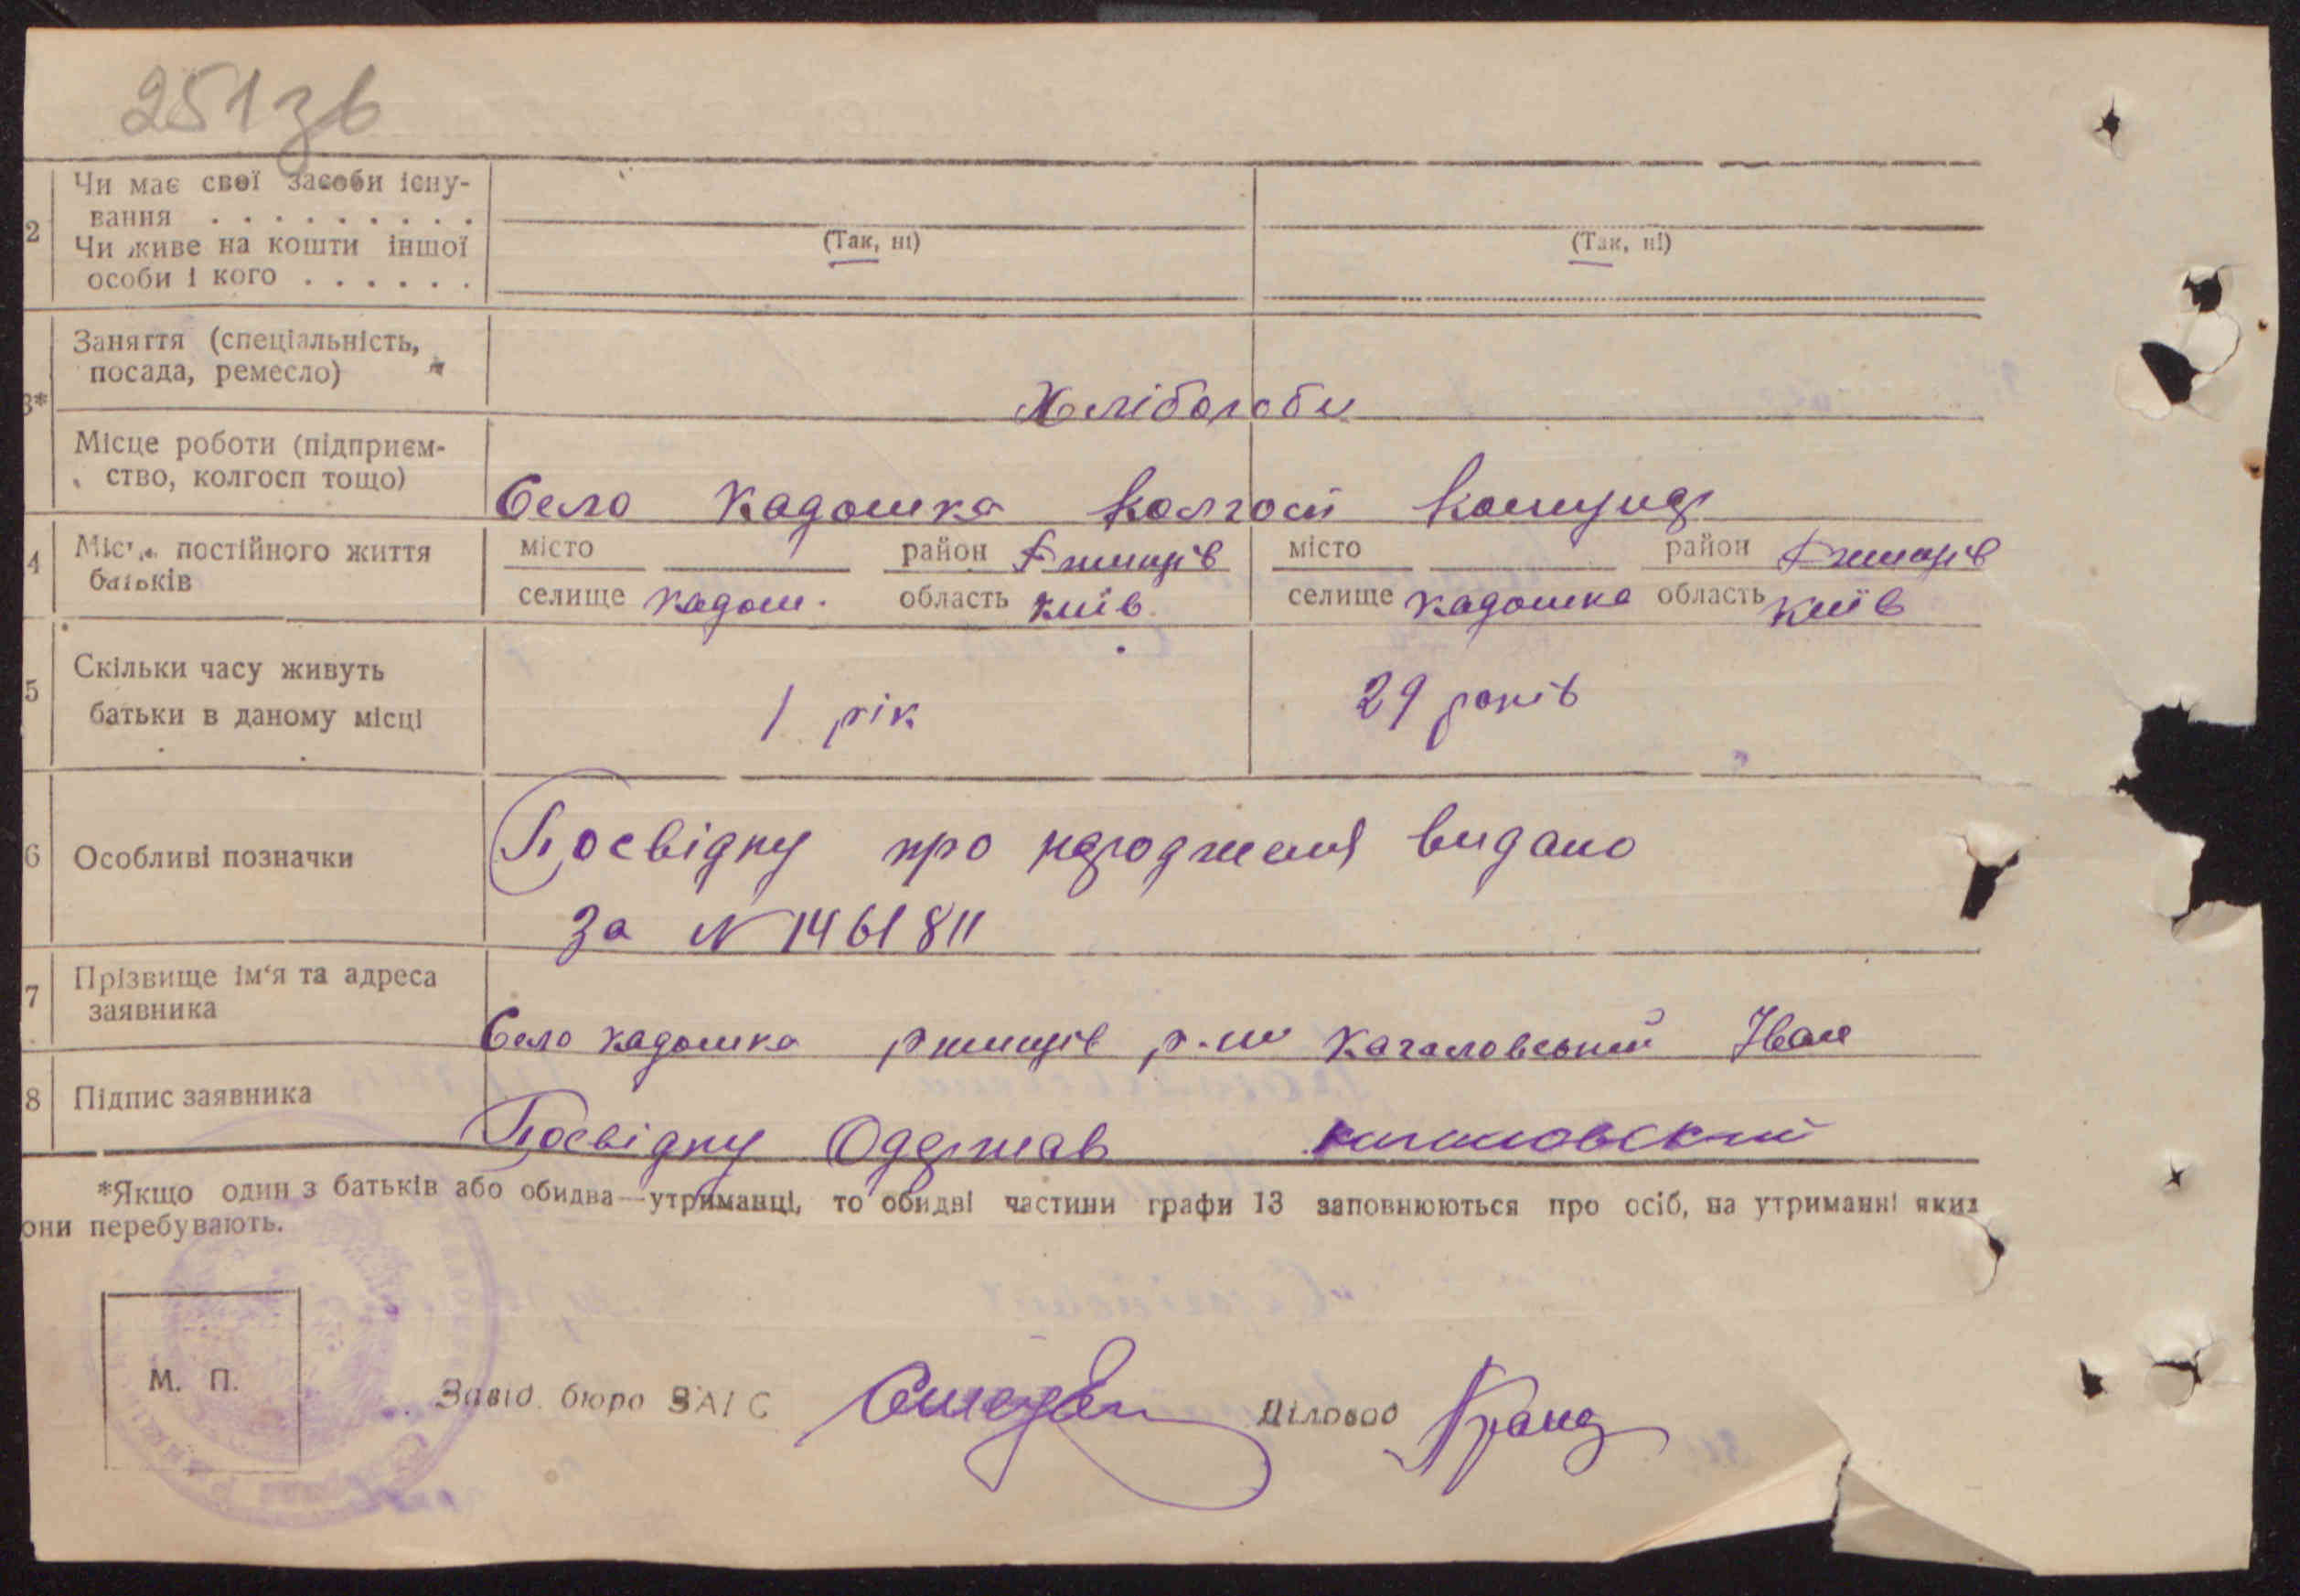 251зв
2 Чи має свої засоби існу-
вання . . . . . . . . .
Чи живе на кошти іншої
особи і кого . . . . . .
(Так, ні) (Так, ні)
3* Заняття (спеціальність,
посада, ремесло)
Хлібороби
Місце роботи (підприєм-
ство, колгосп тощо)
село Кадомка колгосп Комунар
4 Місце постійного життя
батьків
місто район Ржищів місто район Ржищів
селище Кадом. область Київ. селище Кадомка область Київ
5 Скільки часу живуть
батьки в даному місці
1 рік 29 років
6 Особливі позначки
Посвідку про народження видано
За N 1461811
7 Прізвище ім'я та адреса
заявника
Село Кадомка Ржищів р-ну Качаловський Іван
8 Підпис заявника
Посвідку Одержав Качаловский
*Якщо один з батьків або обидва—утриманці, то обидві частини графи 13 заповнюються про осіб, на утриманні яких
они перебувають.
М. П.
Завід. бюро ЗАГС Діловод